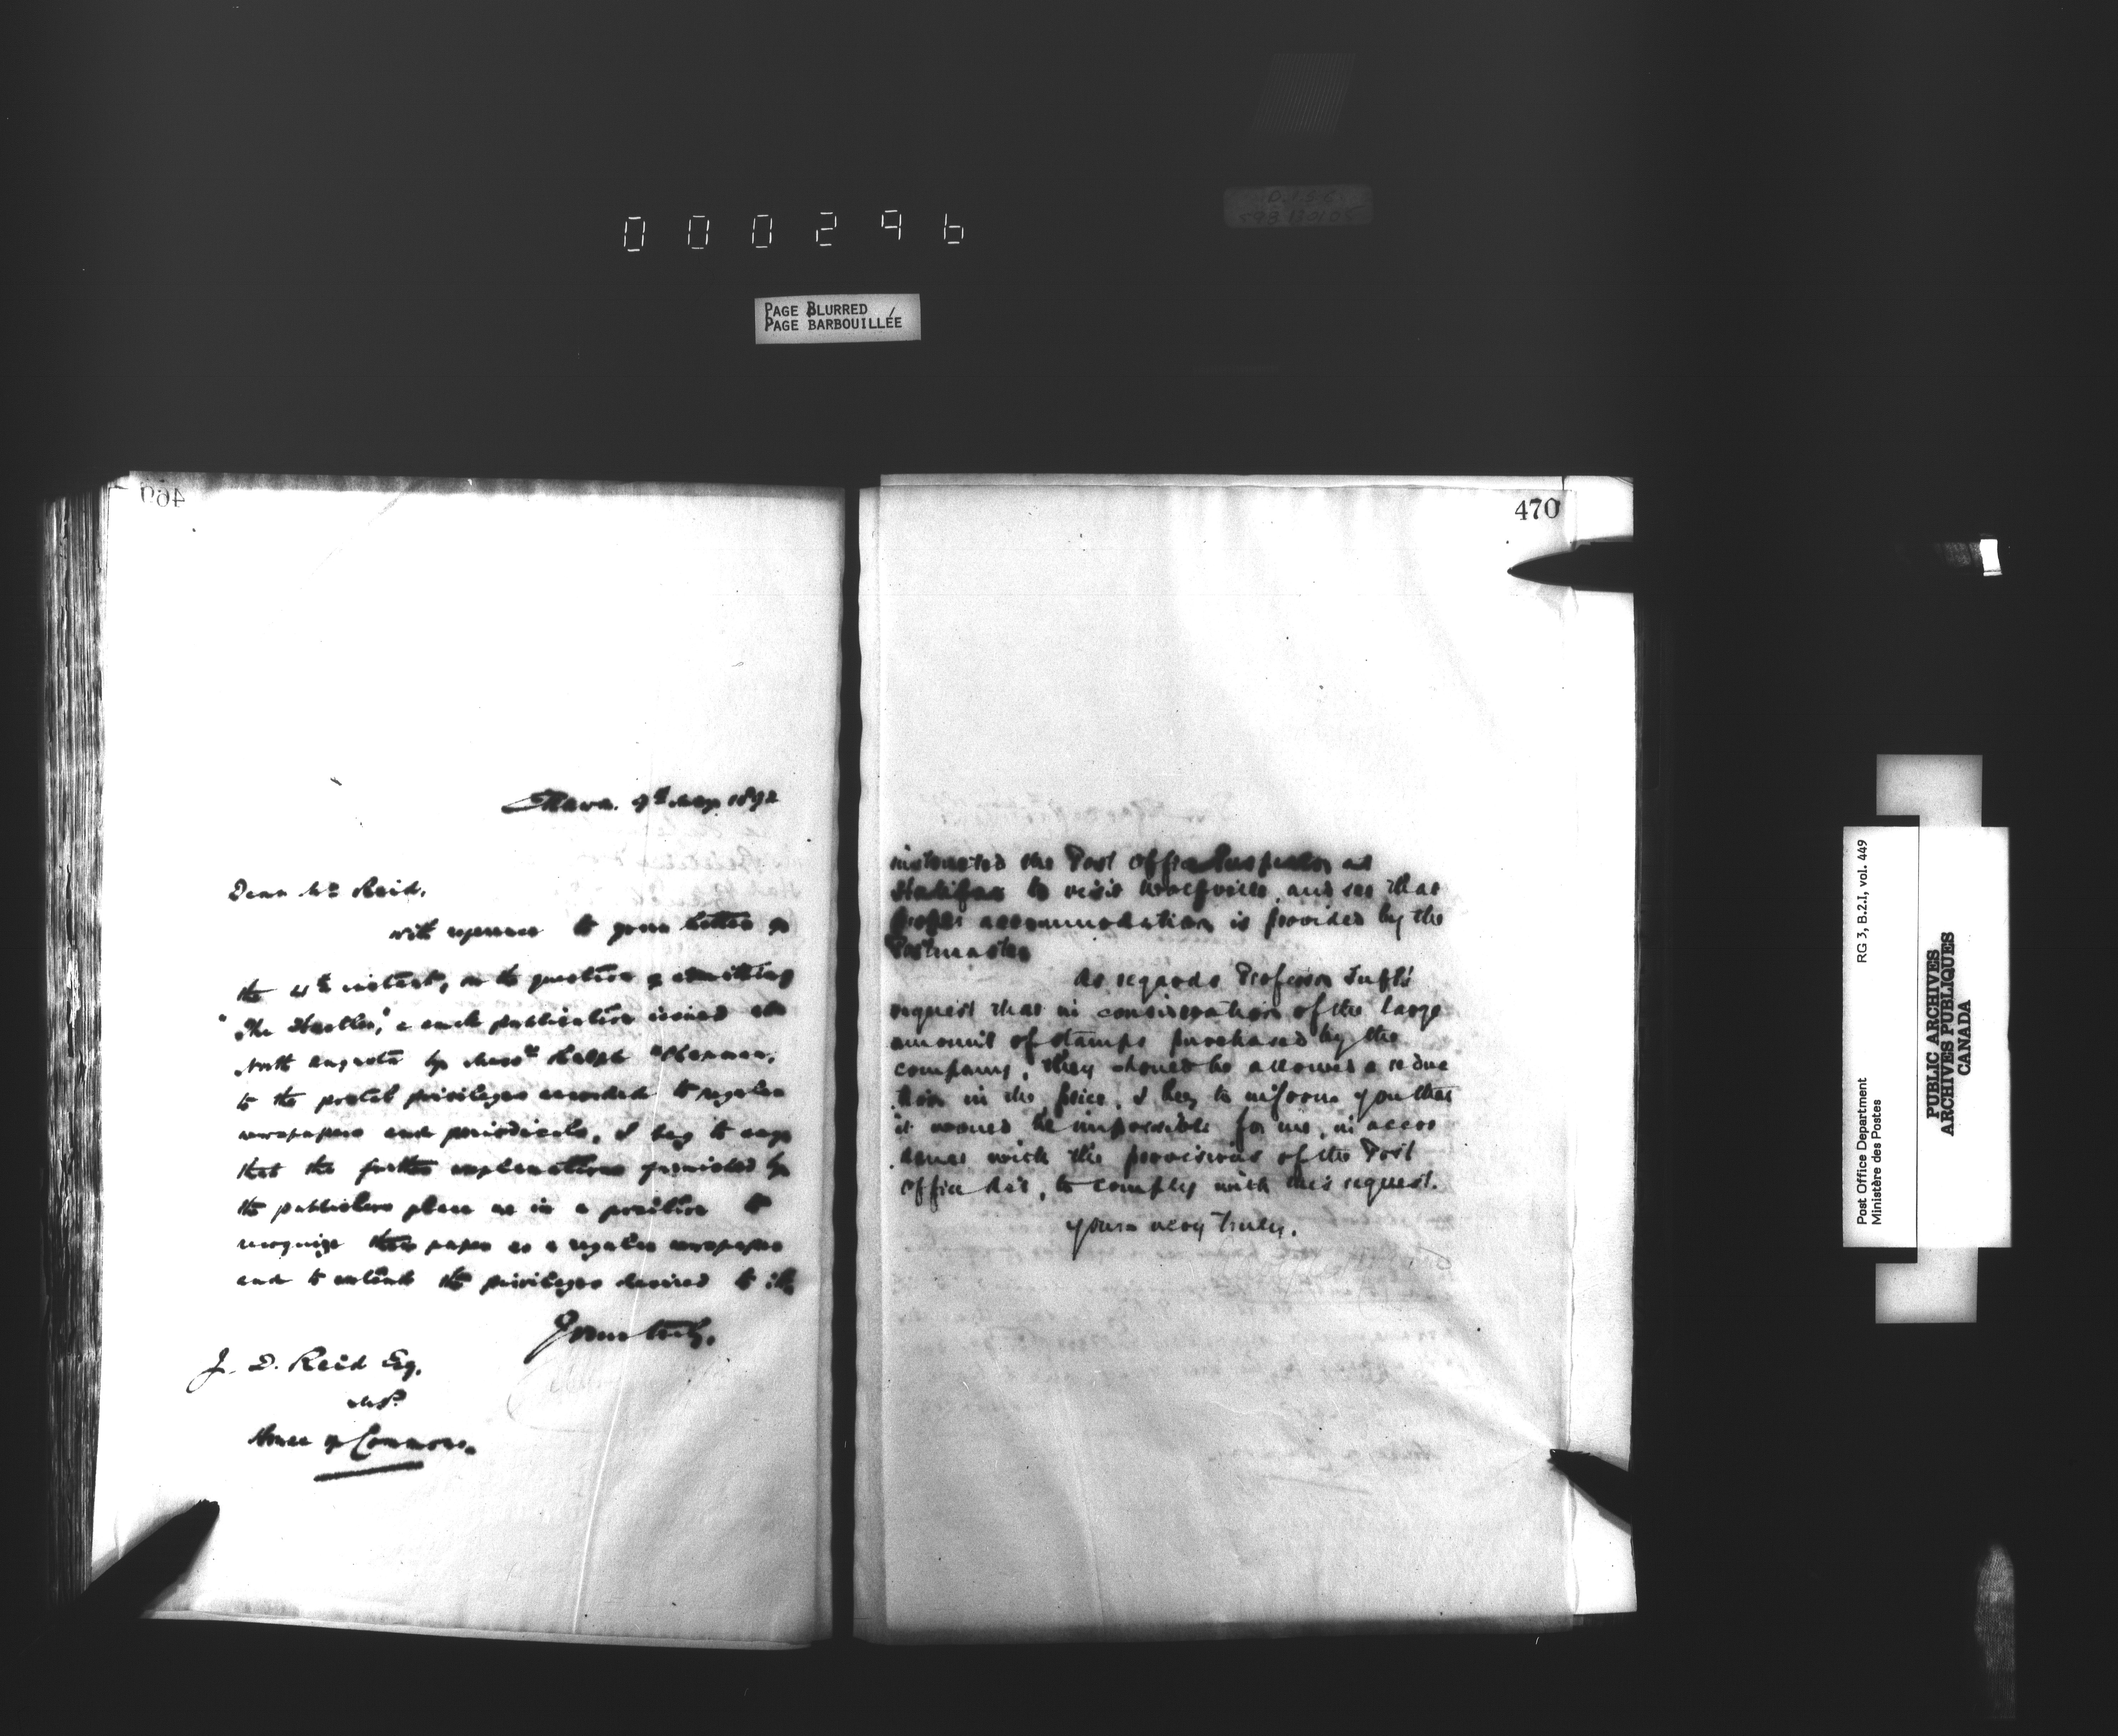 000296
PAGE BLURRED
PAGE BARBOUILLÉE
469
Ottawa. 9th May 1892
Dear Mr Reid,
with reference to your letter of
the 4th instant, on the question of admitting
"The Hustler," a publication issued at
North Augusta by Messrs Ralph
to the postal privileges accorded to regular
newspapers and periodicals, I beg to say
that the further explanations furnished by
the publishers place us in a position to
recognize their paper as a regular newspaper
and to extend the privileges desired to it.
Yours truly,
J. D. Reid Esq,
M.P.
House of Commons.
470
instructed the Post Office Inspector at
Halifax to visit Wolfville, and see that
proper accommodation is provided by the
Postmaster
As regards Professor Tufts'
request that in consideration of the large
amount of stamps purchased by the
company, they should be allowed a reduc
tion in the price, I beg to inform you that
it would be impossible for me, in accor
dance with the provisions of the Post
Office Act, to comply with this request.
yours very truly.
Post Office Department
Ministère des Postes
RG 3, B.2.I, vol. 449
PUBLIC ARCHIVES
ARCHIVES PUBLIQUES
CANADA